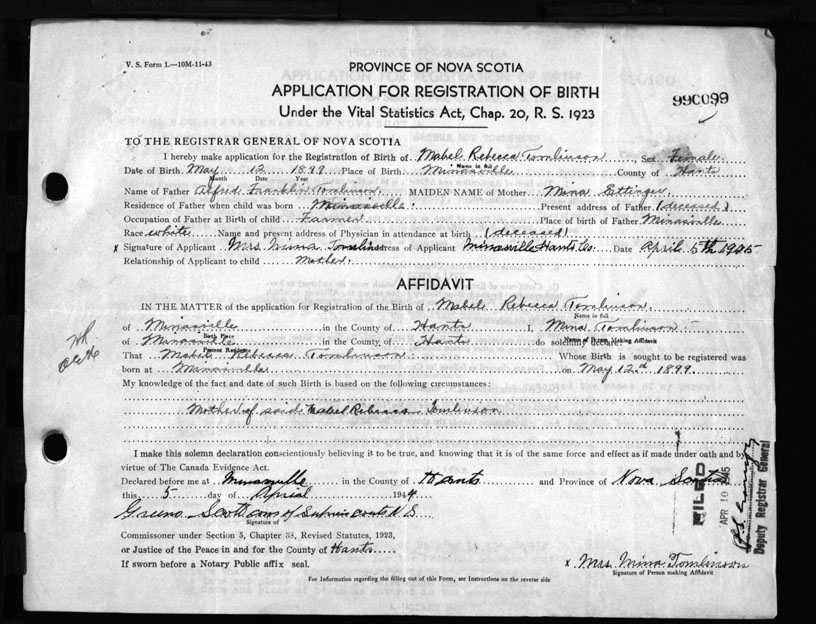 V. S. Form 1.—10M-11-43
PROVINCE OF NOVA SCOTIA
APPLICATION FOR REGISTRATION OF BIRTH
Under the Vital Statistics Act, Chap. 20, R. S. 1923
990099
TO THE REGISTRAR GENERAL OF NOVA SCOTIA
I hereby make application for the Registration of Birth of Mabel Rebecca Tomlinson, Sex Female
Name in full
Date of Birth May 12 1899 Place of Birth Minasville County of Hants
Month Date Year
Name of Father Alfred Franklin Tomlinson. MAIDEN NAME of Mother Mina Ettinger
Residence of Father when child was born Minasville. Present address of Father (deceased)
Occupation of Father at Birth of child Farmer Place of birth of Father Minasville
Race white Name and present address of Physician in attendance at birth (deceased)
x Signature of Applicant Mrs Mina Tomlinson Address of Applicant Minasville Hants Co. Date April 5th 1945
Relationship of Applicant to child Mother.
AFFIDAVIT
IN THE MATTER of the application for Registration of the Birth of Mabel Rebecca Tomlinson.
Name in full
of Minasville in the County of Hants I, Mina Tomlinson
Birth Place Name of Person Making Affidavit
of Minasville in the County of Hants do solemnly declare
Present Residence
That Mabel Rebecca Tomlinson Whose Birth is sought to be registered was
born at Minasville on May 12th 1899.
My knowledge of the fact and date of such Birth is based on the following circumstances:
Mother of said Mabel Rebecca Tomlinson
I make this solemn declaration conscientiously believing it to be true, and knowing that it is of the same force and effect as if made under oath and by
virtue of The Canada Evidence Act.
Declared before me at Minasville in the County of Hants and Province of Nova Scotia
this 5 day of April 194
Scott
Signature of
Commissioner under Section 5, Chapter 38, Revised Statutes, 1923,
or Justice of the Peace in and for the County of Hants
If sworn before a Notary Public affix seal.
x Mrs. Mina Tomlinson
Signature of Person making Affidavit
For Information regarding the filling out of this Form, see Instructions on the reverse side
FILED
APR 10 1945
Deputy Registrar General